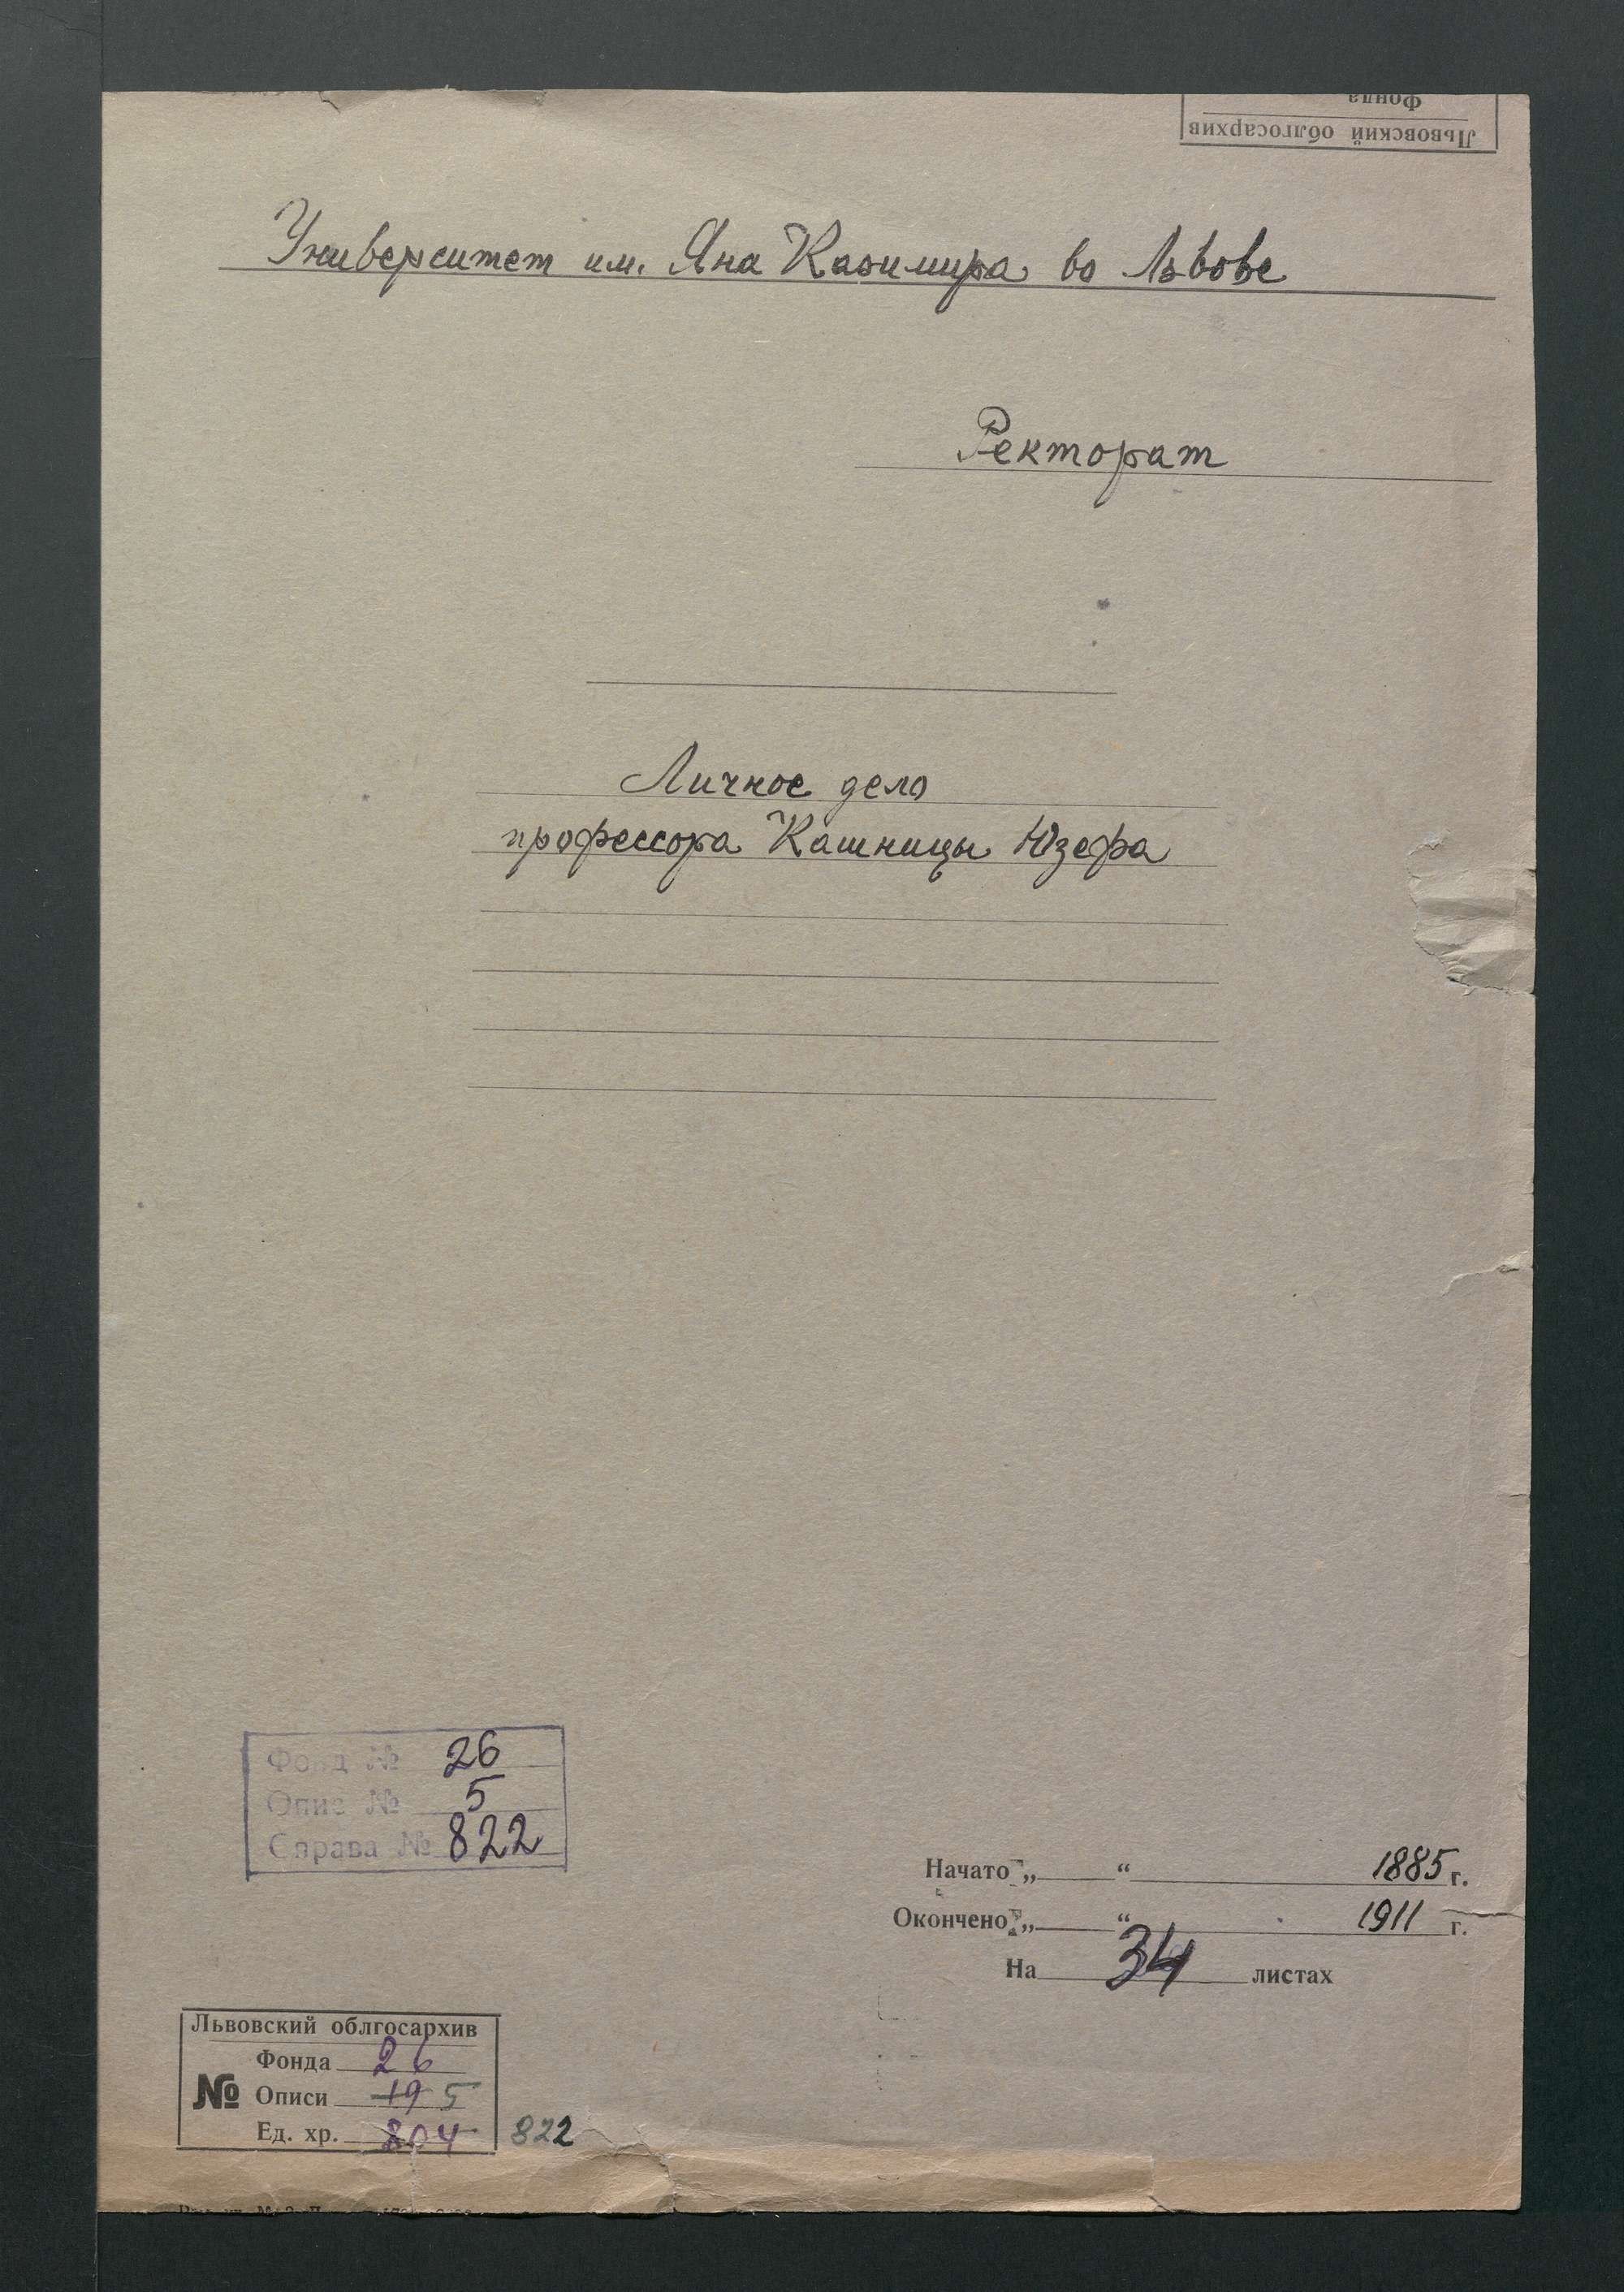 Львовский облгосархив
Фонда
Университет им. Яна Казимира во Львове
Ректорат
Личное дело
профессора Кашницы Юзефа
Фонд № 26
Опис № 5
Справа № 822
Начато „ “ 1885 г.
Окончено „ “ 1911 г.
На 34 листах
Львовский облгосархив
Фонда 26
№ Описи 19 5
Ед. хр. 804 822